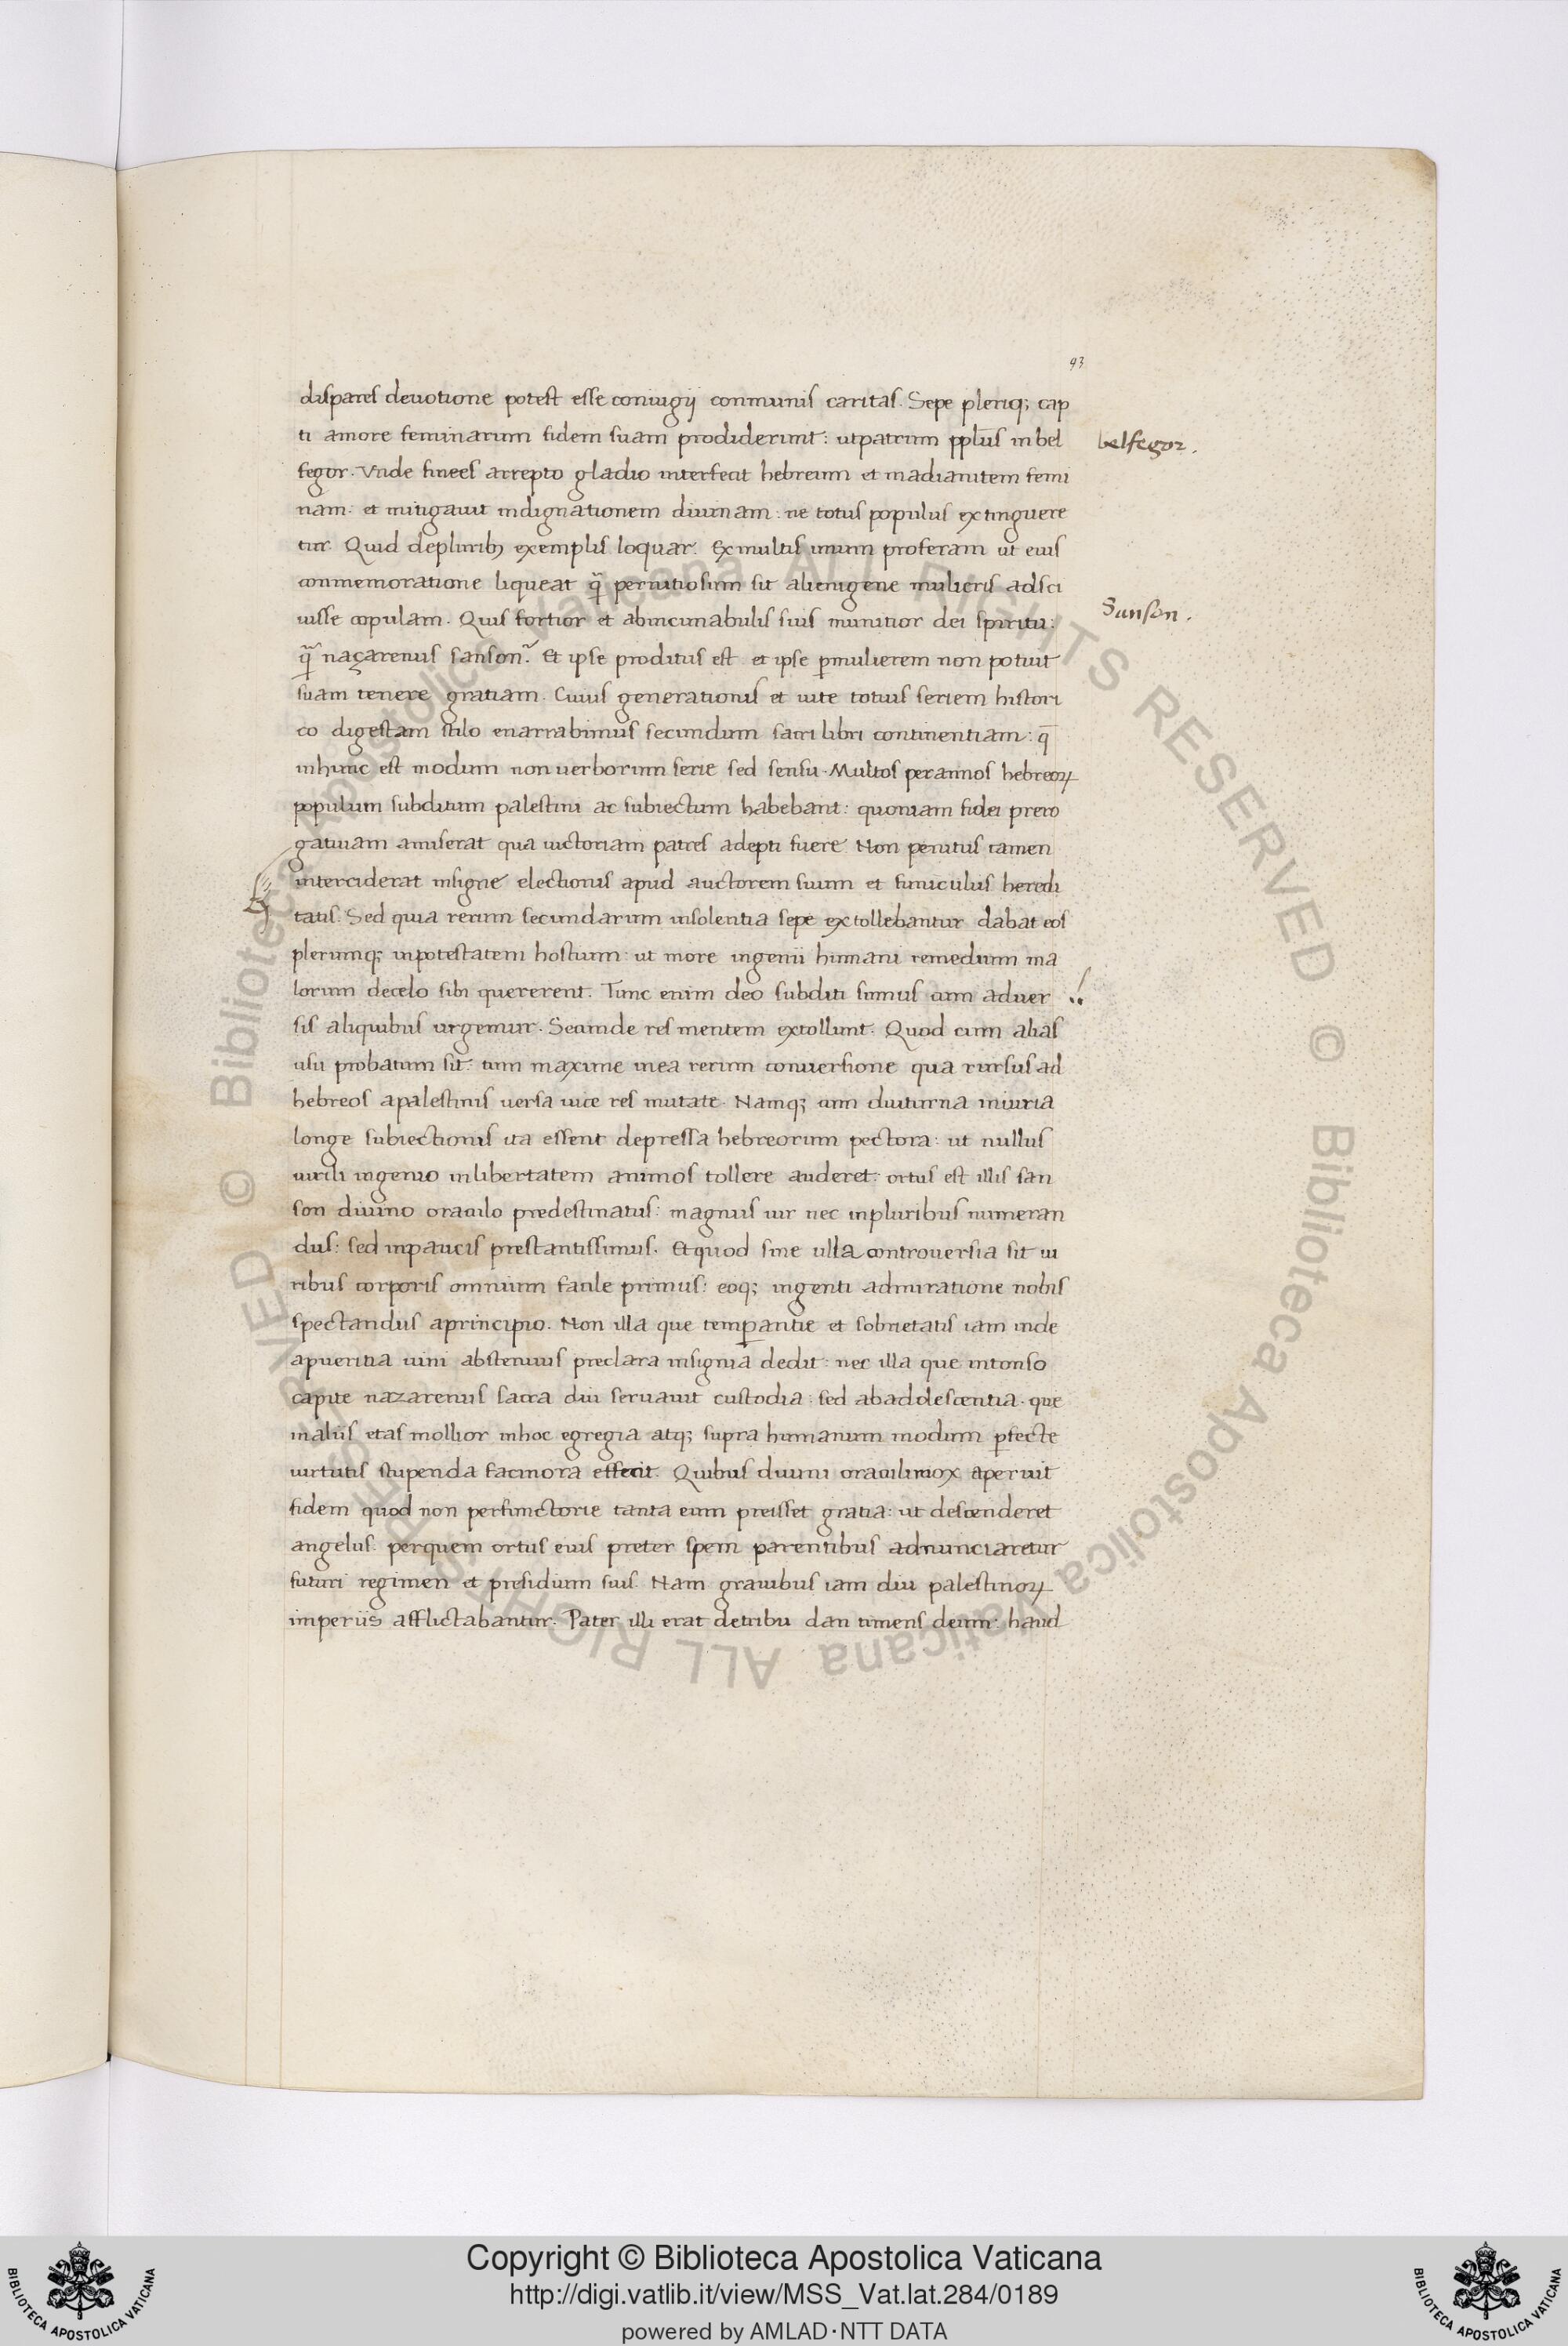 93
dispares deuotione potest esse coniugij conmunis caritas. Sepe pleriq; cap
ti amore feminarum fidem suam prodiderunt: utpatrum ppl̅us in bel
belfegor.
fegor. Vnde finees arrepto gladio interfecit hebreum et madianitem femi
nam: et mitigauit indignationem diuinam: ne totus populus extinguere
tur. Quid depluribꝫ exemplis loquar. Ex multis unum proferam ut eius
conmemoratione liqueat q̄ pernitiosum sit alienigene mulieris adsci
uisse copulam. Quis fortior et abincunabulis suis munitior dei spiritu:
Sanson.
q̄ naçarenus sanson. Et ipse proditus est: et ipse ꝑmulierem non potuit
suam tenere gratiam. Cuius generationis et uite totius seriem histori
co digestam stilo enarrabimus secundum sacri libri continentiam: q̄
inhunc est modum non uerborum serie sed sensu. Multos perannos hebreoꝝ
populum subditum palestini ac subiectum habebant: quoniam fidei prero
gatiuam amiserat qua uictoriam patres adepti fuere. Non penitus tamen
interciderat insigne electionis apud auctorem suum et funiculus heredi
tatis. Sed quia rerum secundarum insolentia sepe extollebantur dabat eos
plerumq; inpotestatem hostium: ut more ingenii humani remedium ma
lorum decelo sibi quererent. Tunc enim deo subditi sumus cum aduer
sis aliquibus urgemur. Secunde res mentem extollunt. Quod cum alias
usu probatum sit: tum maxime inea rerum conuersione qua rursus ad
hebreos apalestinis uersa uice res mutate. Namq; cum diuturna iniuria
longe subiectionis ita essent depressa hebreorum pectora: ut nullus
uirili ingenio inlibertatem animos tollere auderet: ortus est illis san
son diuino oraculo predestinatus: magnus uir nec inpluribus numeran
dus: sed inpaucis prestantissimus. Et quod sine ulla controuersia sit ui
ribus corporis omnium facile primus: eoq; ingenti admiratione nobis
spectandus aprincipio. Non illa que temꝑantie et sobrietatis iam inde
apueritia uini abstemius preclara insignia dedit: nec illa que intonso
capite nazarenus sacra diu seruauit custodia: sed abaddescentia. que
inaliis etas mollior inhoc egregia atq; supra humanum modum ꝑfecte
uirtutis stupenda facinora effecit. Quibus diuini oraculimox aperuit
fidem quod non perfunctorie tanta eum preisset gratia: ut descenderet
angelus: perquem ortus eius preter spem parentibus adnunciaretur
futuri regimen et presidium suis. Nam grauibus iam diu palestinoꝝ
imperiis afflictabantur. Pater illi erat detribu dan timens deum: haud
Copyright © Biblioteca Apostolica Vaticana
http://digi.vatlib.it/view/MSS_Vat.lat.284/0189
powered by AMLAD·NTT DATA
BIBLIOTECA APOSTOLICA VATICANA
BIBLIOTECA APOSTOLICA VATICANA
© Biblioteca Apostolica Vaticana ALL RIGHTS RESERVED © Biblioteca Apostolica Vaticana ALL RIGHTS RESERVED